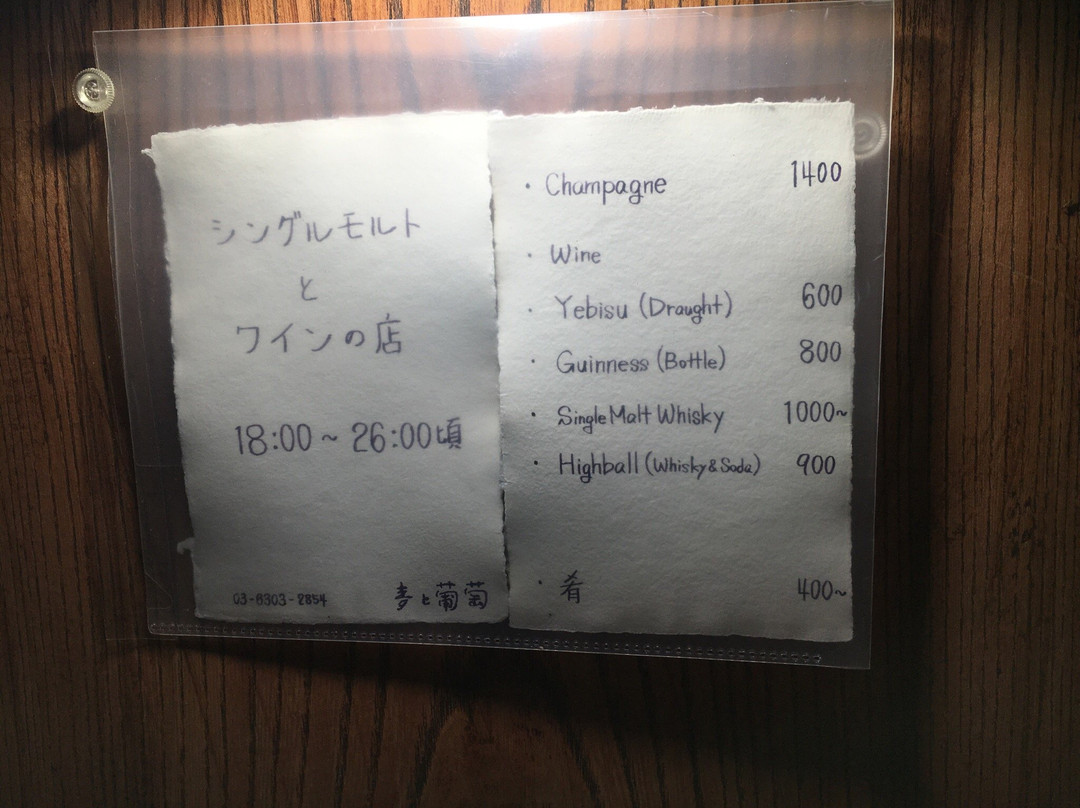 シングルモルト
と
ワインの店
18:00～26:00頃
03-6303-2854
麦と葡萄
・Champagne 1400
・Wine
・Yebisu (Draught) 600
・Guinness (Bottle) 800
・Single Malt Whisky 1000～
・Highball (Whisky & Soda) 900
・肴 400～